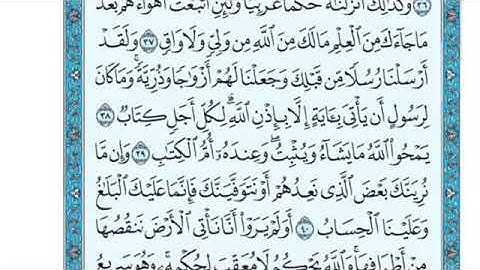 ٣٦ وَكَذَٰلِكَ أَنزَلْنَٰهُ حُكْمًا عَرَبِيًّا وَلَئِنِ ٱتَّبَعْتَ أَهْوَآءَهُم بَعْدَ
مَا جَآءَكَ مِنَ ٱلْعِلْمِ مَا لَكَ مِنَ ٱللَّهِ مِن وَلِيٍّ وَلَا وَاقٍ ٣٧ وَلَقَدْ
أَرْسَلْنَا رُسُلًا مِّن قَبْلِكَ وَجَعَلْنَا لَهُمْ أَزْوَٰجًا وَذُرِّيَّةً ۚ وَمَا كَانَ
لِرَسُولٍ أَن يَأْتِىَ بِـَٔايَةٍ إِلَّا بِإِذْنِ ٱللَّهِ ۗ لِكُلِّ أَجَلٍ كِتَابٌ ٣٨
يَمْحُوا۟ ٱللَّهُ مَا يَشَآءُ وَيُثْبِتُ ۖ وَعِندَهُۥٓ أُمُّ ٱلْكِتَٰبِ ٣٩ وَإِن مَّا
نُرِيَنَّكَ بَعْضَ ٱلَّذِى نَعِدُهُمْ أَوْ نَتَوَفَّيَنَّكَ فَإِنَّمَا عَلَيْكَ ٱلْبَلَٰغُ
وَعَلَيْنَا ٱلْحِسَابُ ٤٠ أَوَلَمْ يَرَوْا۟ أَنَّا نَأْتِى ٱلْأَرْضَ نَنقُصُهَا
مِنْ أَطْرَافِهَا ۚ وَٱللَّهُ يَحْكُمُ لَا مُعَقِّبَ لِحُكْمِهِۦ ۚ وَهُوَ سَرِيعُ